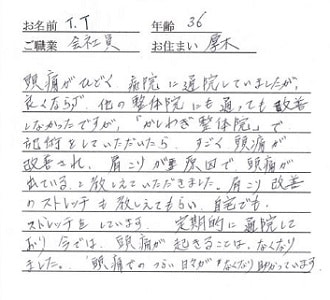 お名前 T.T 年齢 36
ご職業 会社員 お住まい 厚木
頭痛がひどく 病院に通院していましたが、
良くならず、他の整体院にも通っても改善
しなかったですが、「かしわぎ整体院」で
施術をしていただいたら、すごく頭痛が
改善され、肩こりが原因で頭痛が
出ている、と教えていただきました。肩こり改善
のストレッチも教えてもらい、自宅でも
ストレッチをしています。定期的に通院して
おり今では、頭痛が起きることは、なくなり
ました。頭痛でのつらい日々がなくなり助かっています。